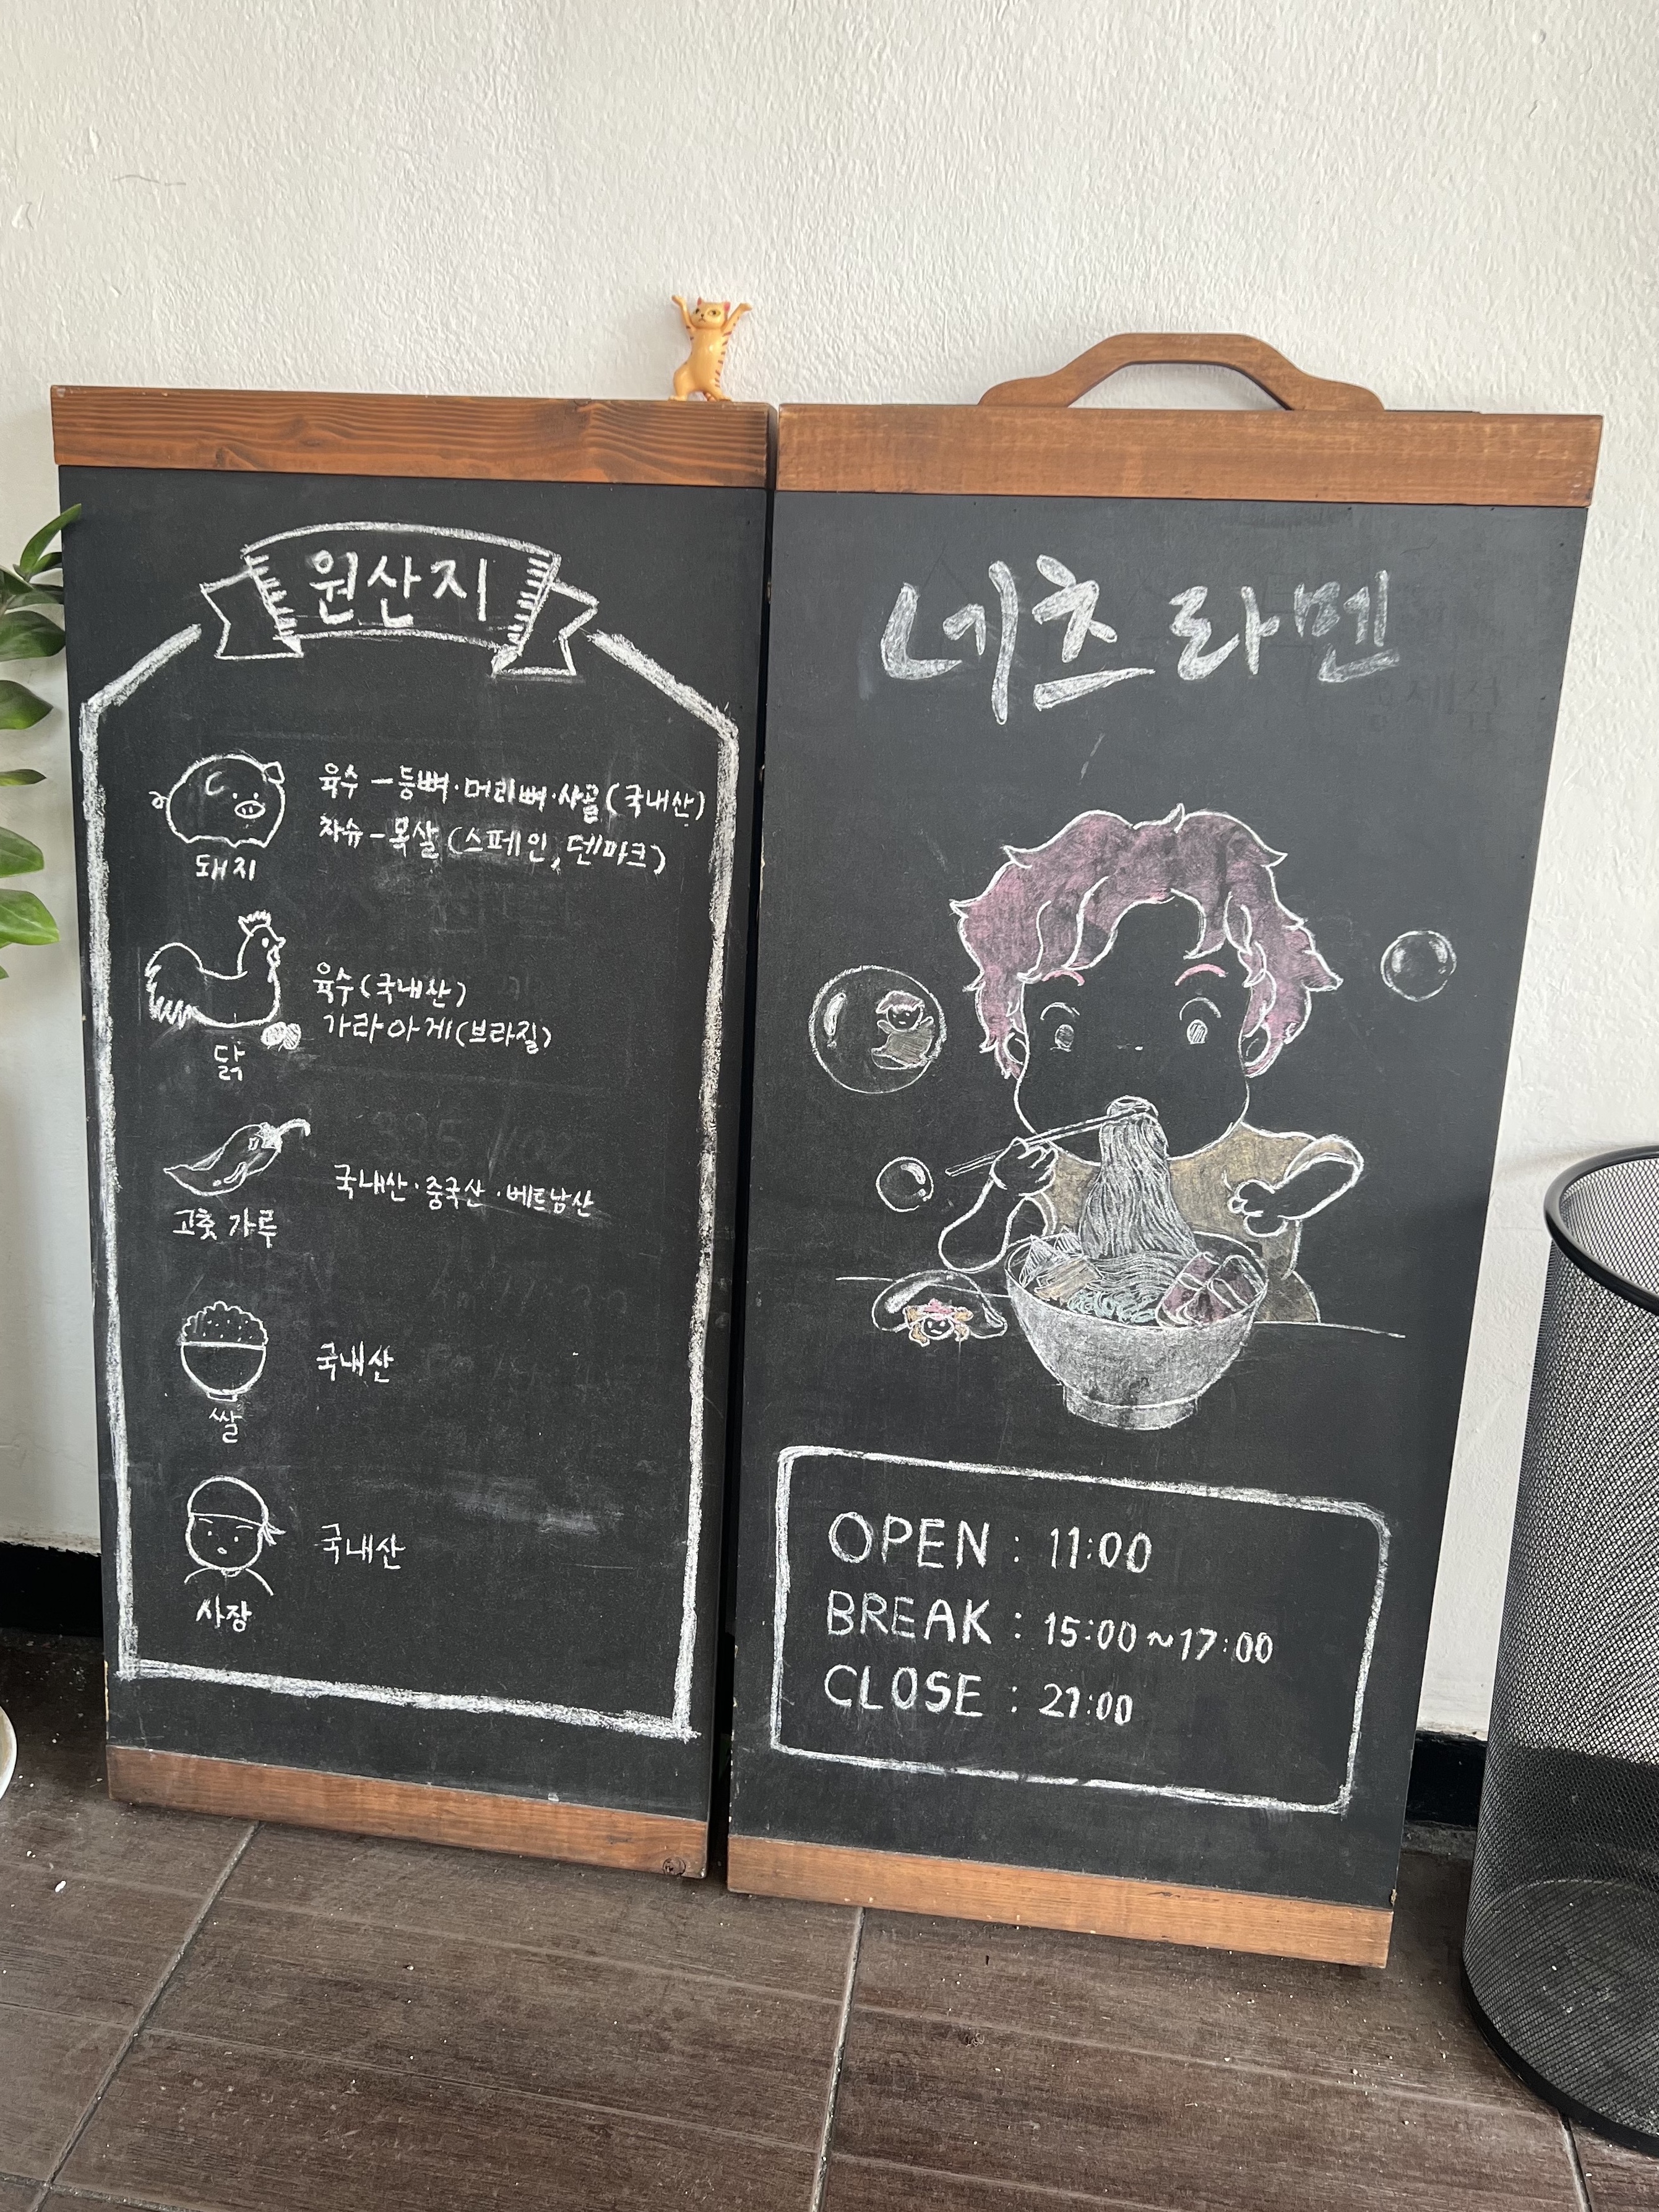 원산지
육수 - 등뼈·머리뼈·사골 (국내산)
차슈 - 목살 (스페인, 덴마크)
돼지
육수 (국내산)
가라아게 (브라질)
닭
국내산·중국산·베트남산
고춧가루
국내산
쌀
국내산
사장
네츠라멘
OPEN : 11:00
BREAK : 15:00~17:00
CLOSE : 21:00